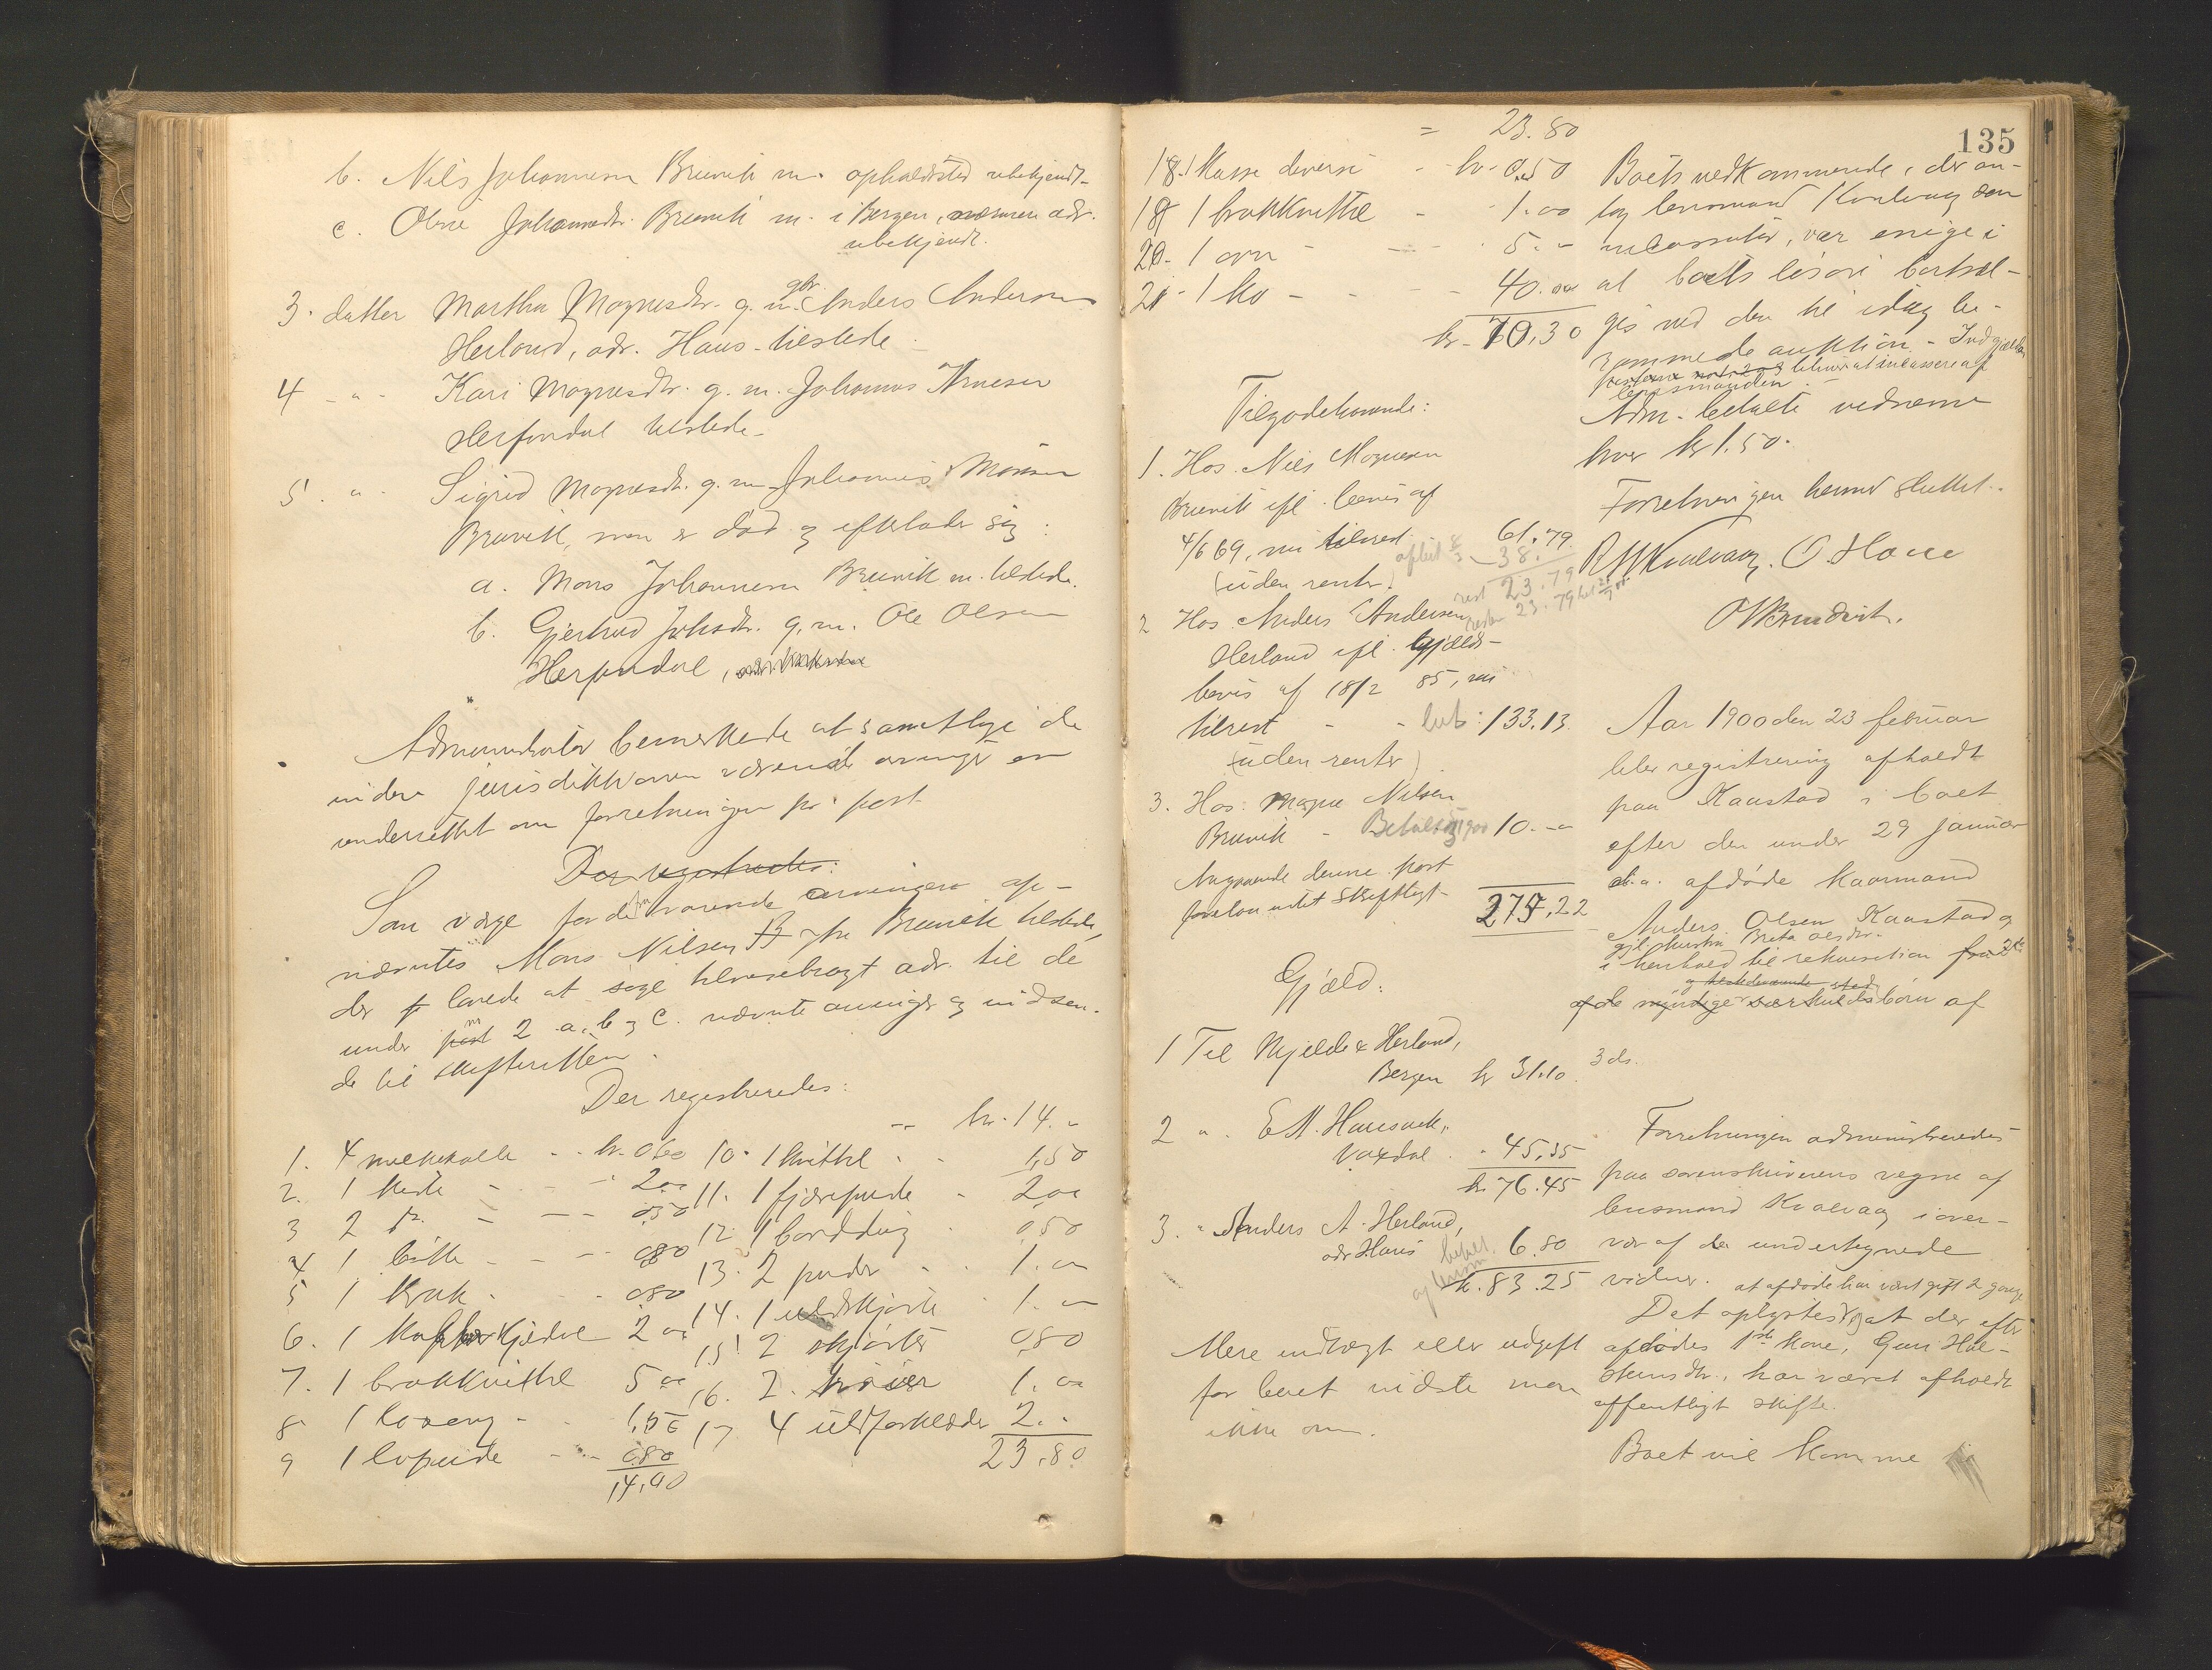 b. Nils Johannesen Bruvik m. opholdssted ubekjendt
c. Oline Johannesdtr. Bruvik m. i Bergen, nærmere adr.
ubekjendt.
3. datter Martha Magnesdtr. g. m. gbr. Anders Andersen
Herland, adr. Haus - tilstede
4 - " - Kari Magnesdtr. g. m. Johannes Arnesen
Herfindal tilstede -
5 . " - Sigrid Magnesdtr. g. m. Johannes Monsen
Bruvik, som er død og efterlader sig:
a. Mons Johannesen Bruvik m. tilstede.
b. Gjertrud Johsdtr. g. m. Ole Olsen
Herfindal,
Administrator bemerkede at samtlige de
inden jurisdiktionen værende arvinger er
underrettet om forretningen pr. post
Der registredes:
Som værge for de fraværende arvinger op-
nævntes Mons Nilsen Bruvik tilstede,
der lovede at søge tilveiebragt adr. til de
under post 2 a, b og c. nævnte arvinger og indsen-
de til skifteretten.
Der registreredes:
-- kr. 14. -
1. 4 melkekolle - - kr. 0.60 10. 1 kvittel - - 1,50
2. 1 kiste - - - 2.00 11. 1 fjærpude - 2,00
3 2 do. - - - 0,50 12. 1 borddug 0,50
4 1 bøtte - - - 0.80 13. 2 puder - - 1. 00
5 1 krak - - 0.80 14. 1 uldskjorte - 1. 00
6. 1 kobberkjedel 2 00 15. 2 skjorter 0,80
7. 1 brokkvittel 5 00 16. 2. trøier 1. 00
8. 1 loseng - - 1.50 17 4 uldforklæder 2. -
9 1 lopude - - 0.80 23,80
14,00
135
= 23.80
18. 1 kasse diverse - kr. 0,50
19 1 brokkvittel - 1.00
20. 1 ovn - - - 5. -
21 - 1 ko - - - 40.00
kr. 70,30
Tilgodehavende:
1. Hos Nils Magnesen
Bruvik ifl. bevis af
4/6 69, nu tilrest - 61.79
38.
(uden renter) rest 23.79
2 Hos Anders Andersen
Herland ifl. gjelds-
bevis af 18/2 85, nu
tilrest - - 133.13
(uden renter)
3. Hos Magne Nilsen
Bruvik - Betalt 10. -
Angaaende denne post
forelaa intet skriftligt
275,22
Gjæld:
1 Til Kjelde & Herland,
Bergen kr 31.10
2 " E M. Hansen,
Vaxdal - 45,35
kr. 76.45
3. " Anders A. Herland,
adr Haus 6.80
kr. 83.25
Mere indtægt eller udgift
for boet vidste man
ikke om.
Boets vedkommende, der an-
tog lensmand Kvalvaag som
inkassator, var enige i
at boets løsøre bortsæl-
ges ved den til idag be-
rammede auktion - Indgjælden
bliver at inkassere af
lensmanden -
Adm. betalte vidnerne
hver kr 1.50.
Forretningen hermed sluttet.
R Kvalvaag. O Houe
O Brudvik.
Aar 1900 den 23 februar
blev registrering afholdt
paa Kaastad i boet
efter den under 29 januar
d. a. afdøde kaarmand
Anders Olsen Kaastad og
hustru Brita Olsdtr.
i henhold til rekvisition fra
af de myndige særkuldsbørn af
3 ds.
Forretningen administreredes
paa sorenskriverens vegne af
lensmand Kvalvaag i over-
vær af de undertegnede
vidner. at afdøde har vært gift 2 gange
Det oplystes og at der efter
afdødes 1ste kone, Guri Hal-
steinsdtr., har været afholdt
offentligt skifte.
Boet vil komme